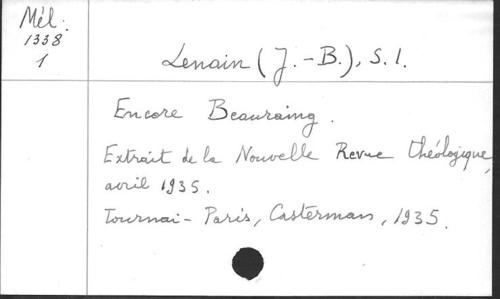 Mél:
1338
1
Lenain (J.-B.), S.I.
Encore Beauraing.
Extrait de la Nouvelle Revue théologique,
avril 1935.
Tournai-Paris, Casterman, 1935.